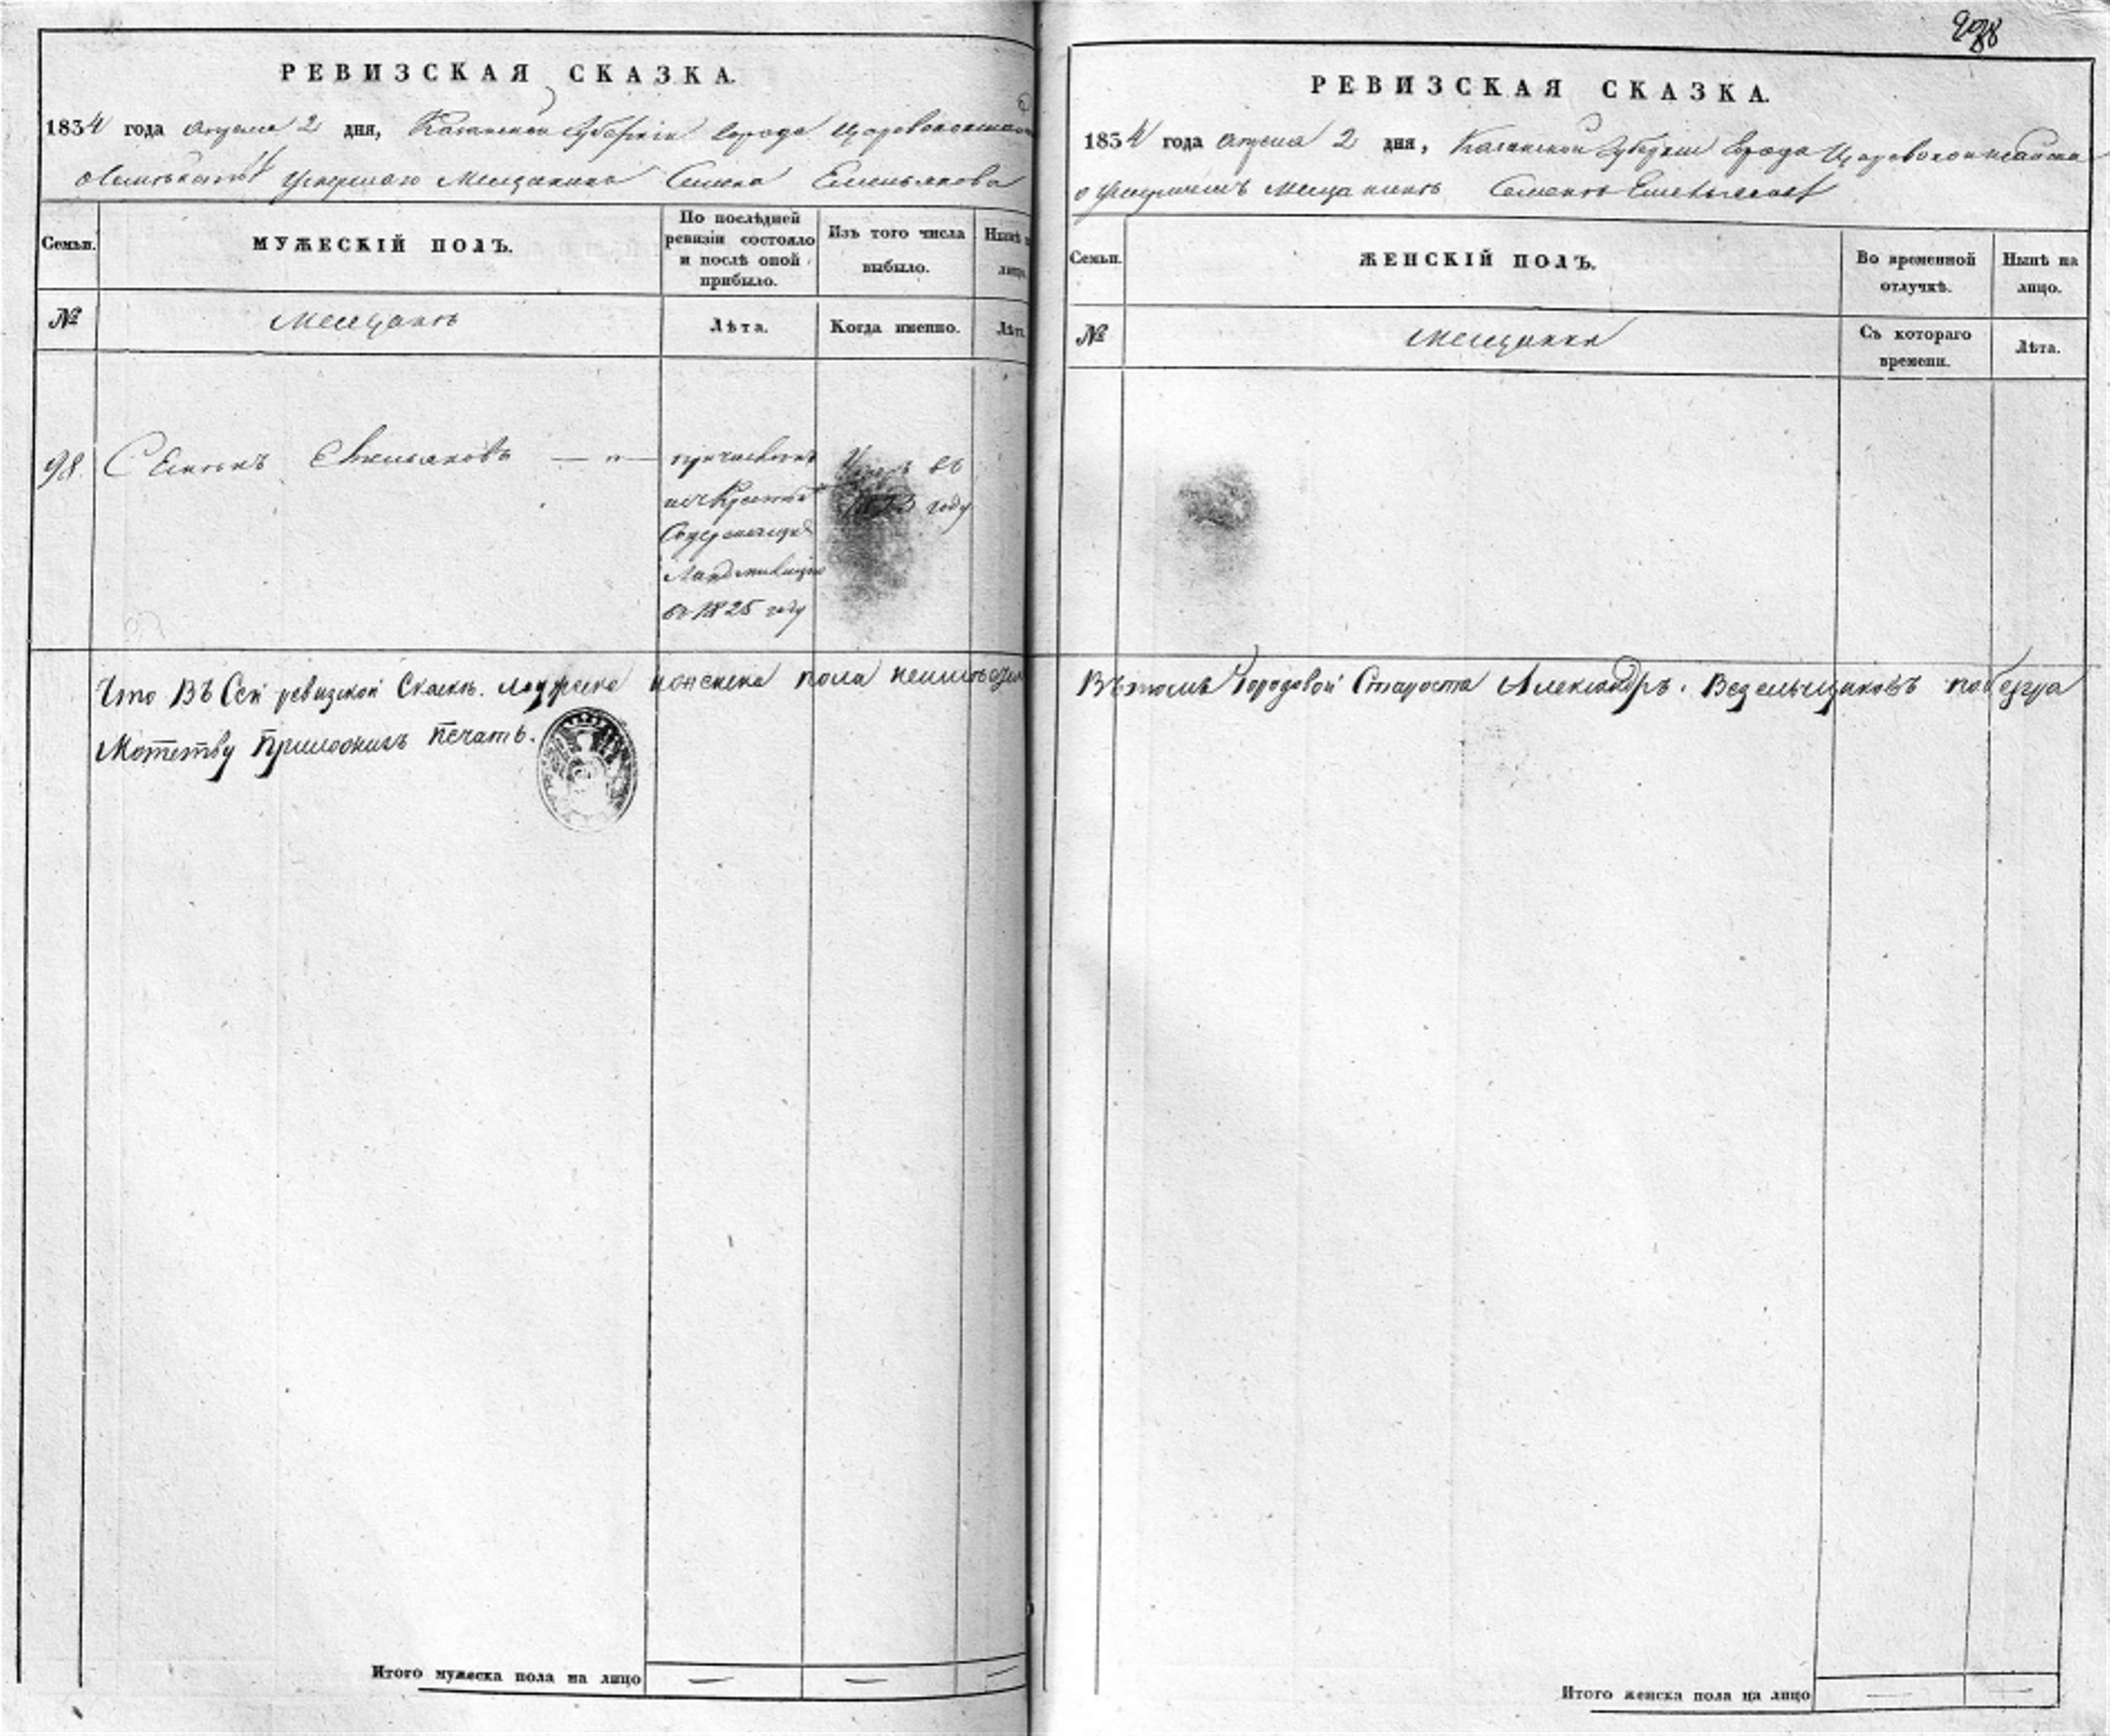 РЕВИЗСКАЯ СКАЗКА.
1834 года апреля 2 дня, Казанской губернiи города Царевококшайска
умершаго мещанина Семена Емельянова
Семьи.
МУЖЕСКIЙ ПОЛЪ.
По послѣдней ревизiи состояло и послѣ оной прибыло.
Изъ того числа выбыло.
Нынѣ на лицо.
№
Мещанъ
Лѣта.
Когда именно.
Лѣта.
98. Семенъ Емельяновъ — " —
причисленъ
въ 1825 году
въ
году
Что Въ Сей ревизской Сказке. женска пола
приложилъ печать.
Итого мужеска пола на лицо
298
РЕВИЗСКАЯ СКАЗКА.
1834 года апреля 2 дня, Казанской губернiи города Царевококшайска
о умершемъ мещанине Семене Емельянове
Семьи.
ЖЕНСКIЙ ПОЛЪ.
Во временной отлучкѣ.
Нынѣ на лицо.
№
Мещанки
Съ котораго времени.
Лѣта.
Въ томъ городовой Староста Александръ.
Итого женска пола на лицо